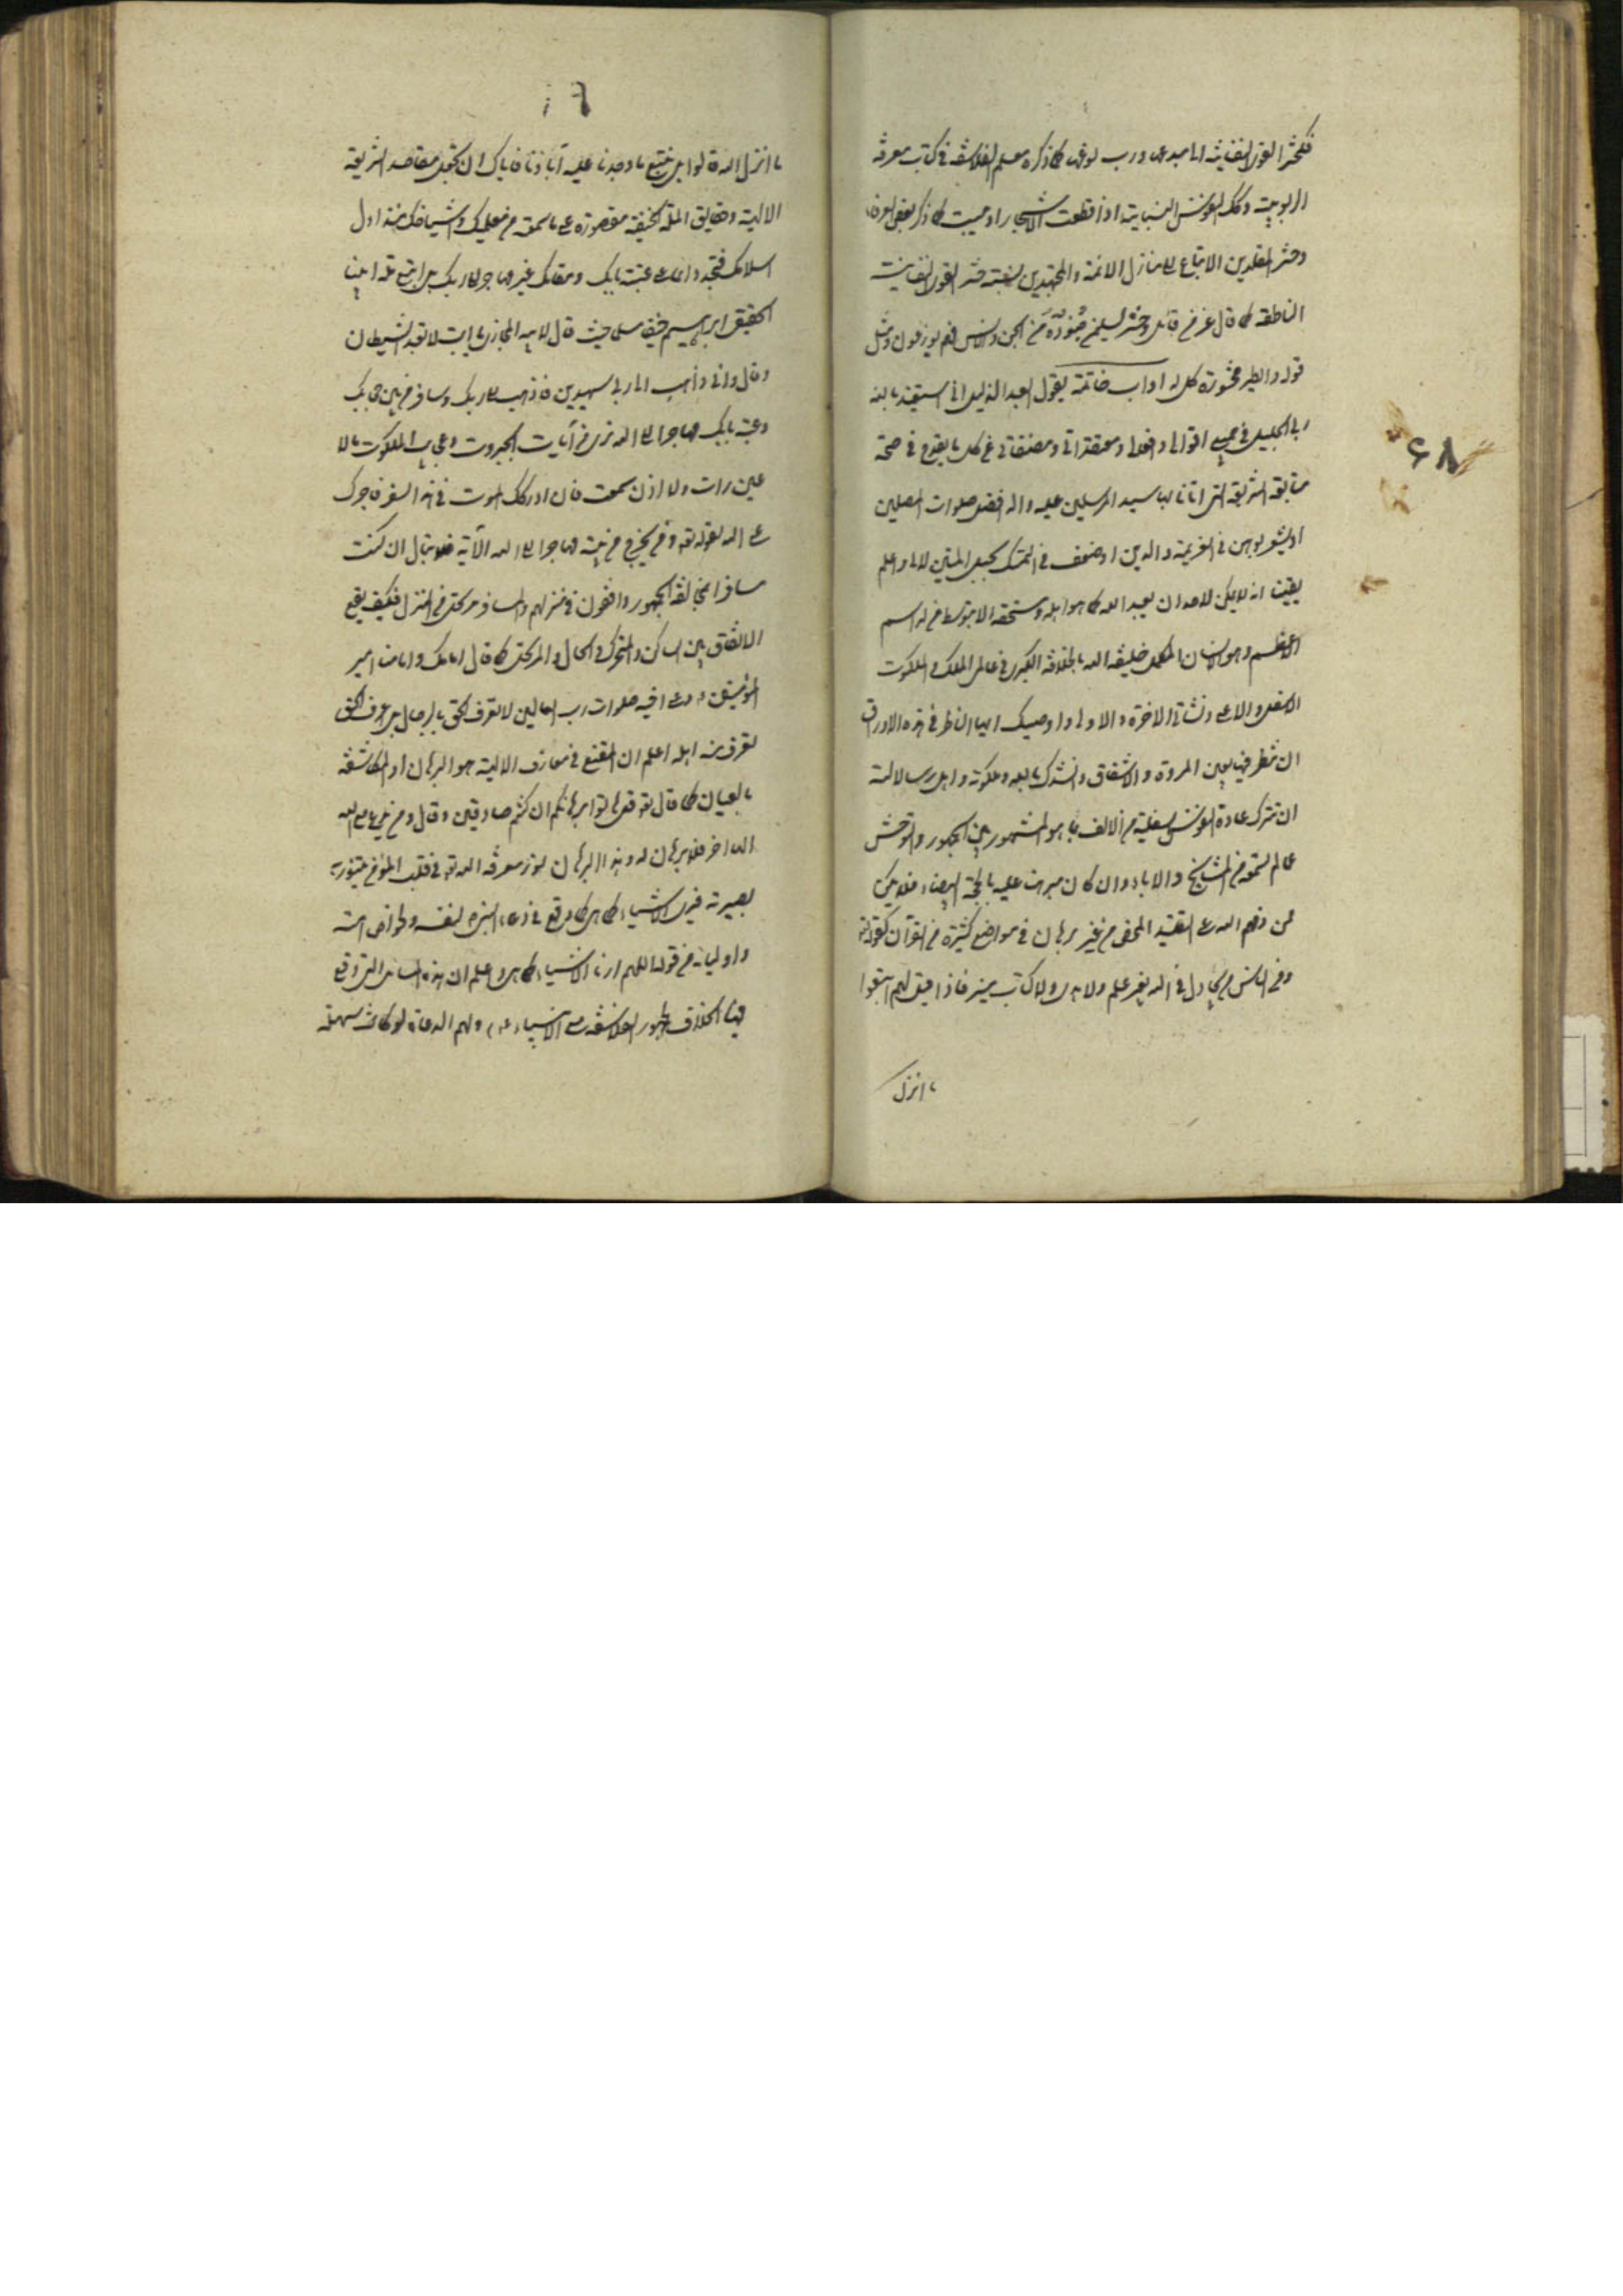 فكحشر القوى النفسانية الى مبدعها ورب نوعها كما ذكره معلم الفلاسفة في كتاب معرفة
الربوبية وكك النفوس النباتية اذا قطعت الاشجار او يبست كما ذكر بعض العرفاء
وحشر المقلدين الاتباع الى منازل الائمة والمجتهدين نسبته حشر القوى النفسانية
الناطقة كما قال عز من قائل وحشر لسليمن جنوده من الجن والانس فهم يوزعون ومثل
قوله والطير محشورة كل له اواب خاتمة يقول العبد الذليل اني استعيذ بالله
ربي الجليل في جميع اقوالي وافعالي ومعتقداتي ومصنفاتي عن كل ما يقدح في صحة
متابعة الشريعة التي اتانا بها سيد المرسلين عليه واله افضل صلوات المصلين
او يشعر بوهن في العزيمة والدين او ضعف في التمسك بحبل المتين لاني اعلم
يقينا انه لا يمكن لاحد ان يعبد الله كما هو اهله ومستحقه الا بتوسط من له الاسم
الاعظم وهو الانسان الكامل خليفة الله بالخلافة الكبرى في عالمي الملك و الملكوت
الاسفل والاعلى ونشأتي الاخرة والاولى واوصيك ايها الناظر في هذه الاوراق
ان تنظر فيها بعين المروة والاشفاق وانشدك بالله وملكوته واهل رسالاته
ان تترك عادة النفوس السفلية من الالف بما هو المشهور بين الجمهور والتوحش
عما لم تسمعه من المشايخ والاباء وان كان مبرهنا عليه بالحجة البيضاء فلا تكن
ممن ذمهم الله على التقليد المحض من غير برهان في مواضع كثيرة من القرآن كقوله تعالى
ومن الناس من يجادل في الله بغير علم ولا هدى ولا كتاب منير فاذا قيل لهم اتبعوا
ما انزل
٦٨
ما انزل الله قالوا بل نتبع ما وجدنا عليه آباءنا فاياك ان تجعل مقاصد الشريعة
الالهية وحقايق الملة الحنيفية مقصورة على ما سمعته من معلميك واشياخك منذ اول
اسلامك فتجمد دائما على عتبة بابك ومقامك غير مهاجر الى ربك بل اتبع ملة ابينا
الحقيقي ابراهيم حنيفا مسلما حيث قال لابيه المجازي يا ابت لا تعبد الشيطان
وقال واني ذاهب الى ربي سيهدين فاذهب الى ربك وسافر من بين حجابك
وعتبة بابك مهاجرا الى الله ترى من آيات الجبروت وعجايب الملكوت ما لا
عين رات ولا اذن سمعت فان ادركك الموت في هذا السفر فاجرك
على الله لقوله تعالى ومن يخرج من بيته مهاجرا الى الله الآية فلا تبال ان كنت
مسافرا بمخالفة الجمهور واقفون في منزلهم والمسافر مرتحل من المنزل فكيف يقع
الاتفاق بين الساكن والمتحرك في الحال والمرتحل كما قال امامك وامامنا امير
المؤمنين وعلى اخيه صلوات رب العالمين لا تعرف الحق بالرجال بل اعرف الحق
تعرف منه اهله اعلم ان المتبع في معارف الالهية هو البرهان او المكاشفة
بالعيان كما قال تعالى قل هاتوا برهانكم ان كنتم صادقين وقال ومن يدع مع الله
الها اخر لا برهان له به وهذا البرهان نور معرفة الله تعالى في قلب المؤمن يتنور به
بصيرته فيرى الاشياء كما هي كما وقع في دعاء النبي لنفسه ولخواص امته
واوليائه من قوله اللهم ارنا الاشياء كما هي واعلم ان هذه المسائل التي وقع
فيها الخلاف بين جمهور الفلاسفة مع الانبياء وهم الدعاة لو كانت سهلة